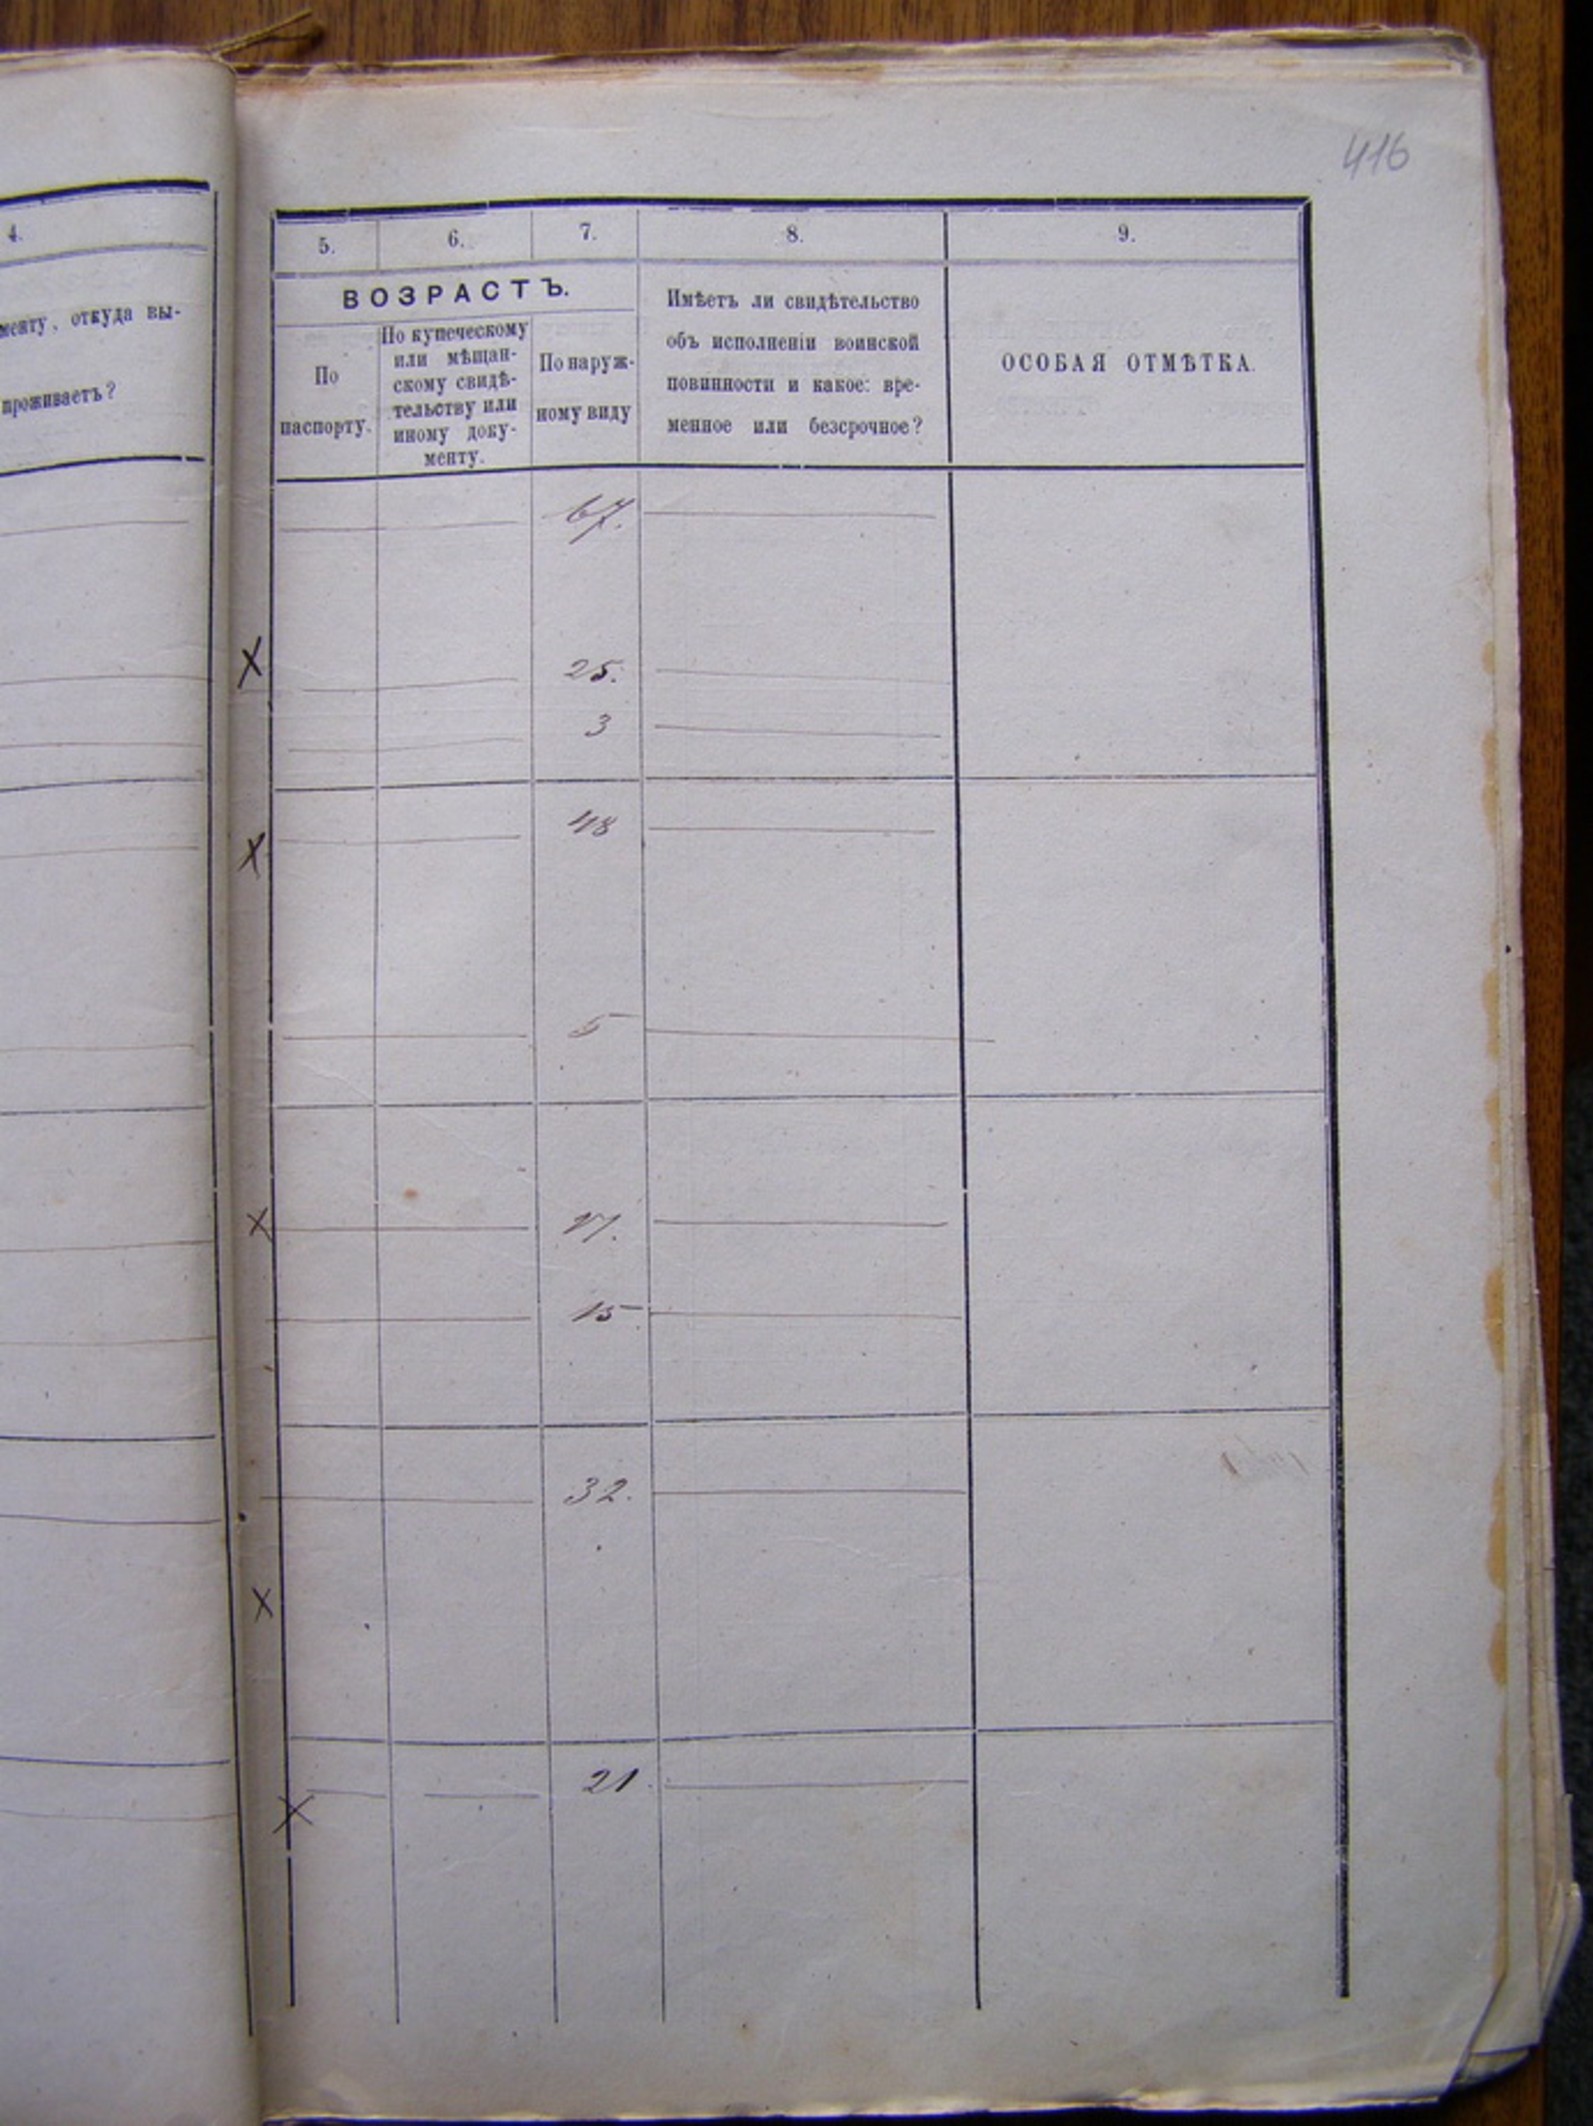 416
4.
менту, откуда вы-
проживаетъ?
5. 6. 7. 8. 9.
ВОЗРАСТЪ.
По
паспорту.
По купеческому
или мѣщан-
скому свидѣ-
тельству или
иному доку-
менту.
По наруж-
ному виду
Имѣетъ ли свидѣтельство
объ исполненіи воинской
повинности и какое: вре-
менное или безсрочное?
ОСОБАЯ ОТМѢТКА.
67.
X 25.
3
X 48
5
X
15
32.
X
X 21.